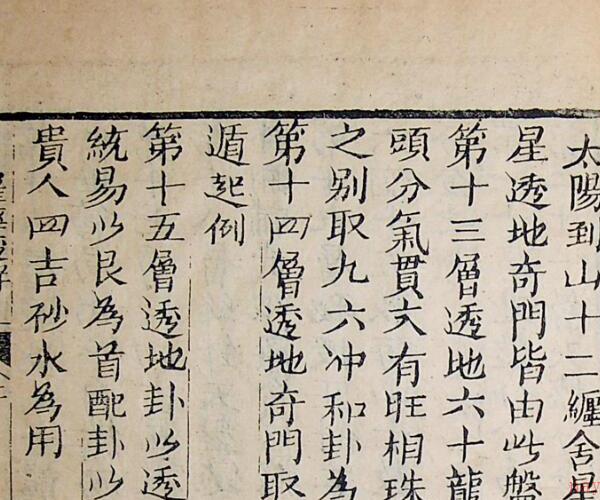 太陽到山十二纏舍星
星透地奇門皆由此盤
第十三層透地六十龍
頭分氣貫大有旺相珠
之别取九六冲和卦為
第十四層透地奇門取
遁起例
第十五層透地卦以透
統易以艮為首配卦以
貴人四吉砂水為用